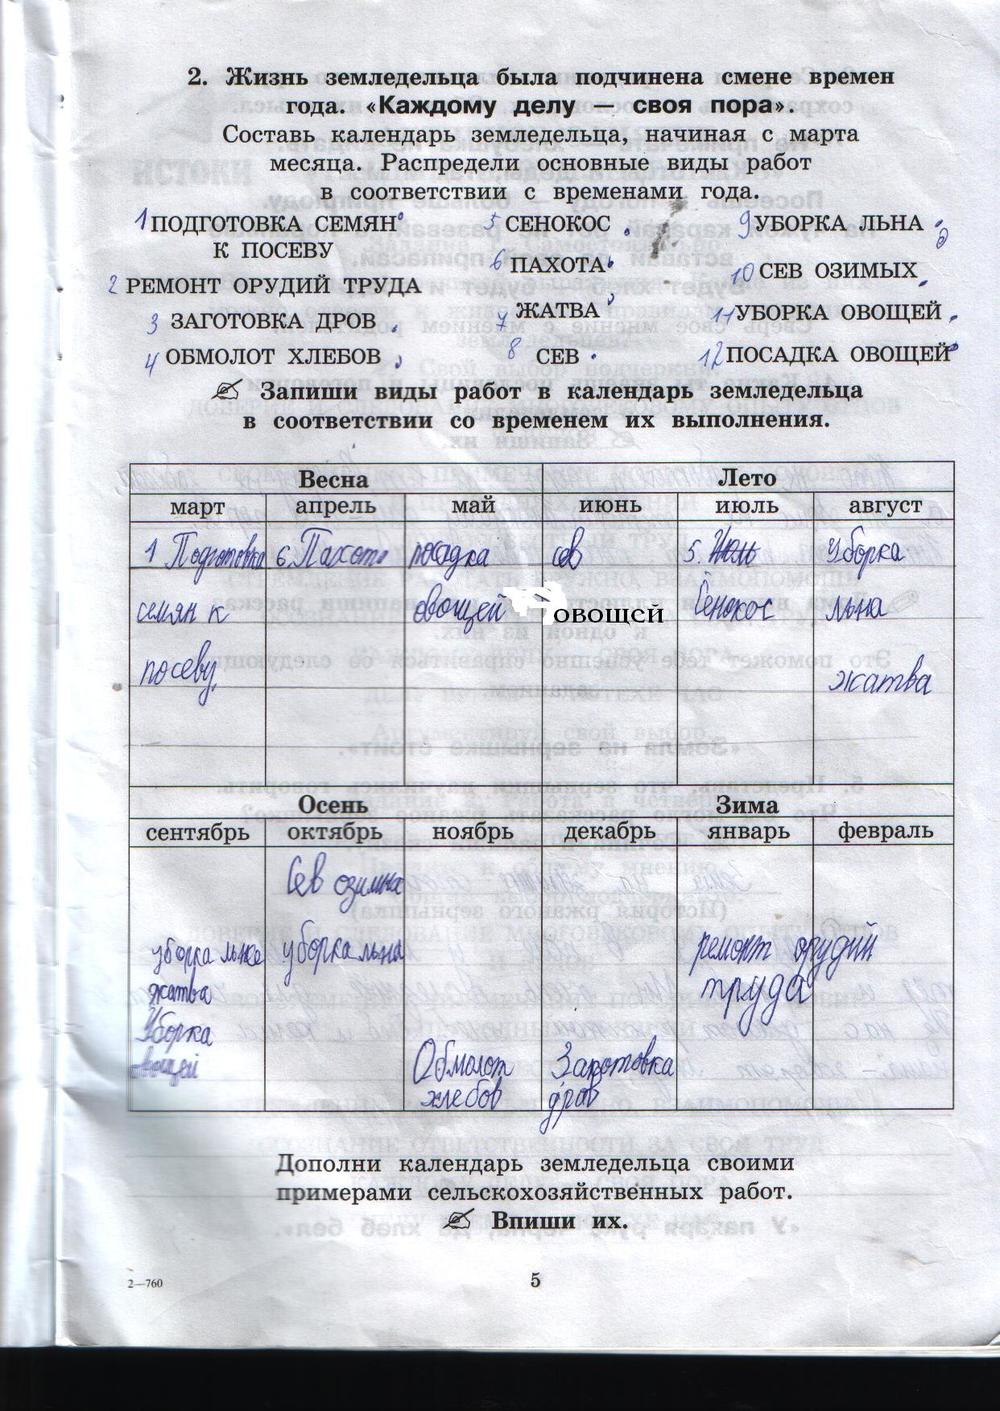 2. Жизнь земледельца была подчинена смене времен
года. «Каждому делу — своя пора».
Составь календарь земледельца, начиная с марта
месяца. Распредели основные виды работ
в соответствии с временами года.
1 ПОДГОТОВКА СЕМЯН 5 СЕНОКОС 9 УБОРКА ЛЬНА
К ПОСЕВУ 6 ПАХОТА 10 СЕВ ОЗИМЫХ
2 РЕМОНТ ОРУДИЙ ТРУДА
3 ЗАГОТОВКА ДРОВ 7 ЖАТВА 11 УБОРКА ОВОЩЕЙ
4 ОБМОЛОТ ХЛЕБОВ 8 СЕВ 12 ПОСАДКА ОВОЩЕЙ
Запиши виды работ в календарь земледельца
в соответствии со временем их выполнения.
Весна Лето
март апрель май июнь июль август
1 Подготовка 6. Пахота посадка сев 5. Июль Уборка
семян к овощей овощей Сенокос льна
посеву. жатва
Осень Зима
сентябрь октябрь ноябрь декабрь январь февраль
Сев озимна
уборка льна уборка льна ремонт орудий
жатва труда
Уборка
овощей Обмолот Заготовка
хлебов дров
Дополни календарь земледельца своими
примерами сельскохозяйственных работ.
Впиши их.
2—760
5